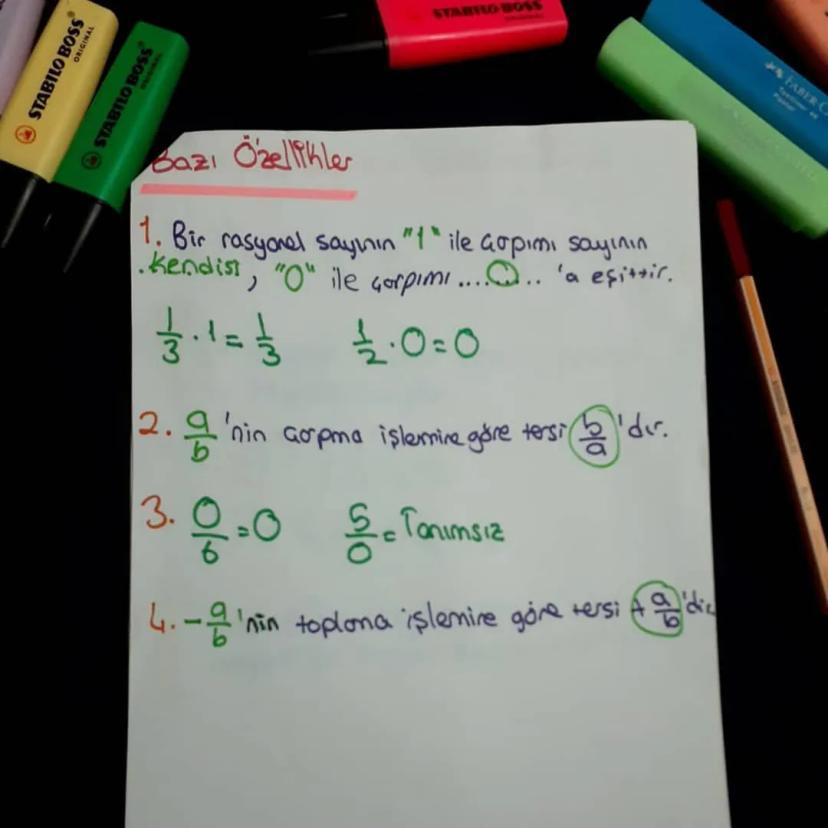 STABILO BOSS
ORIGINAL
STABILO BOSS
ORIGINAL
STABILO BOSS
ORIGINAL
FABER-C
Bazı Özellikler
1. Bir rasyonel sayının "1" ile çarpımı sayının
.kendisi, "0" ile çarpımı....0... 'a eşittir.
1/3 . 1 = 1/3 1/2 . 0 = 0
2. a/b 'nin çarpma işlemine göre tersi b/a 'dır.
3. 0/6 = 0 5/0 = Tanımsız
4. -a/b 'nin toplama işlemine göre tersi +a/b 'dir